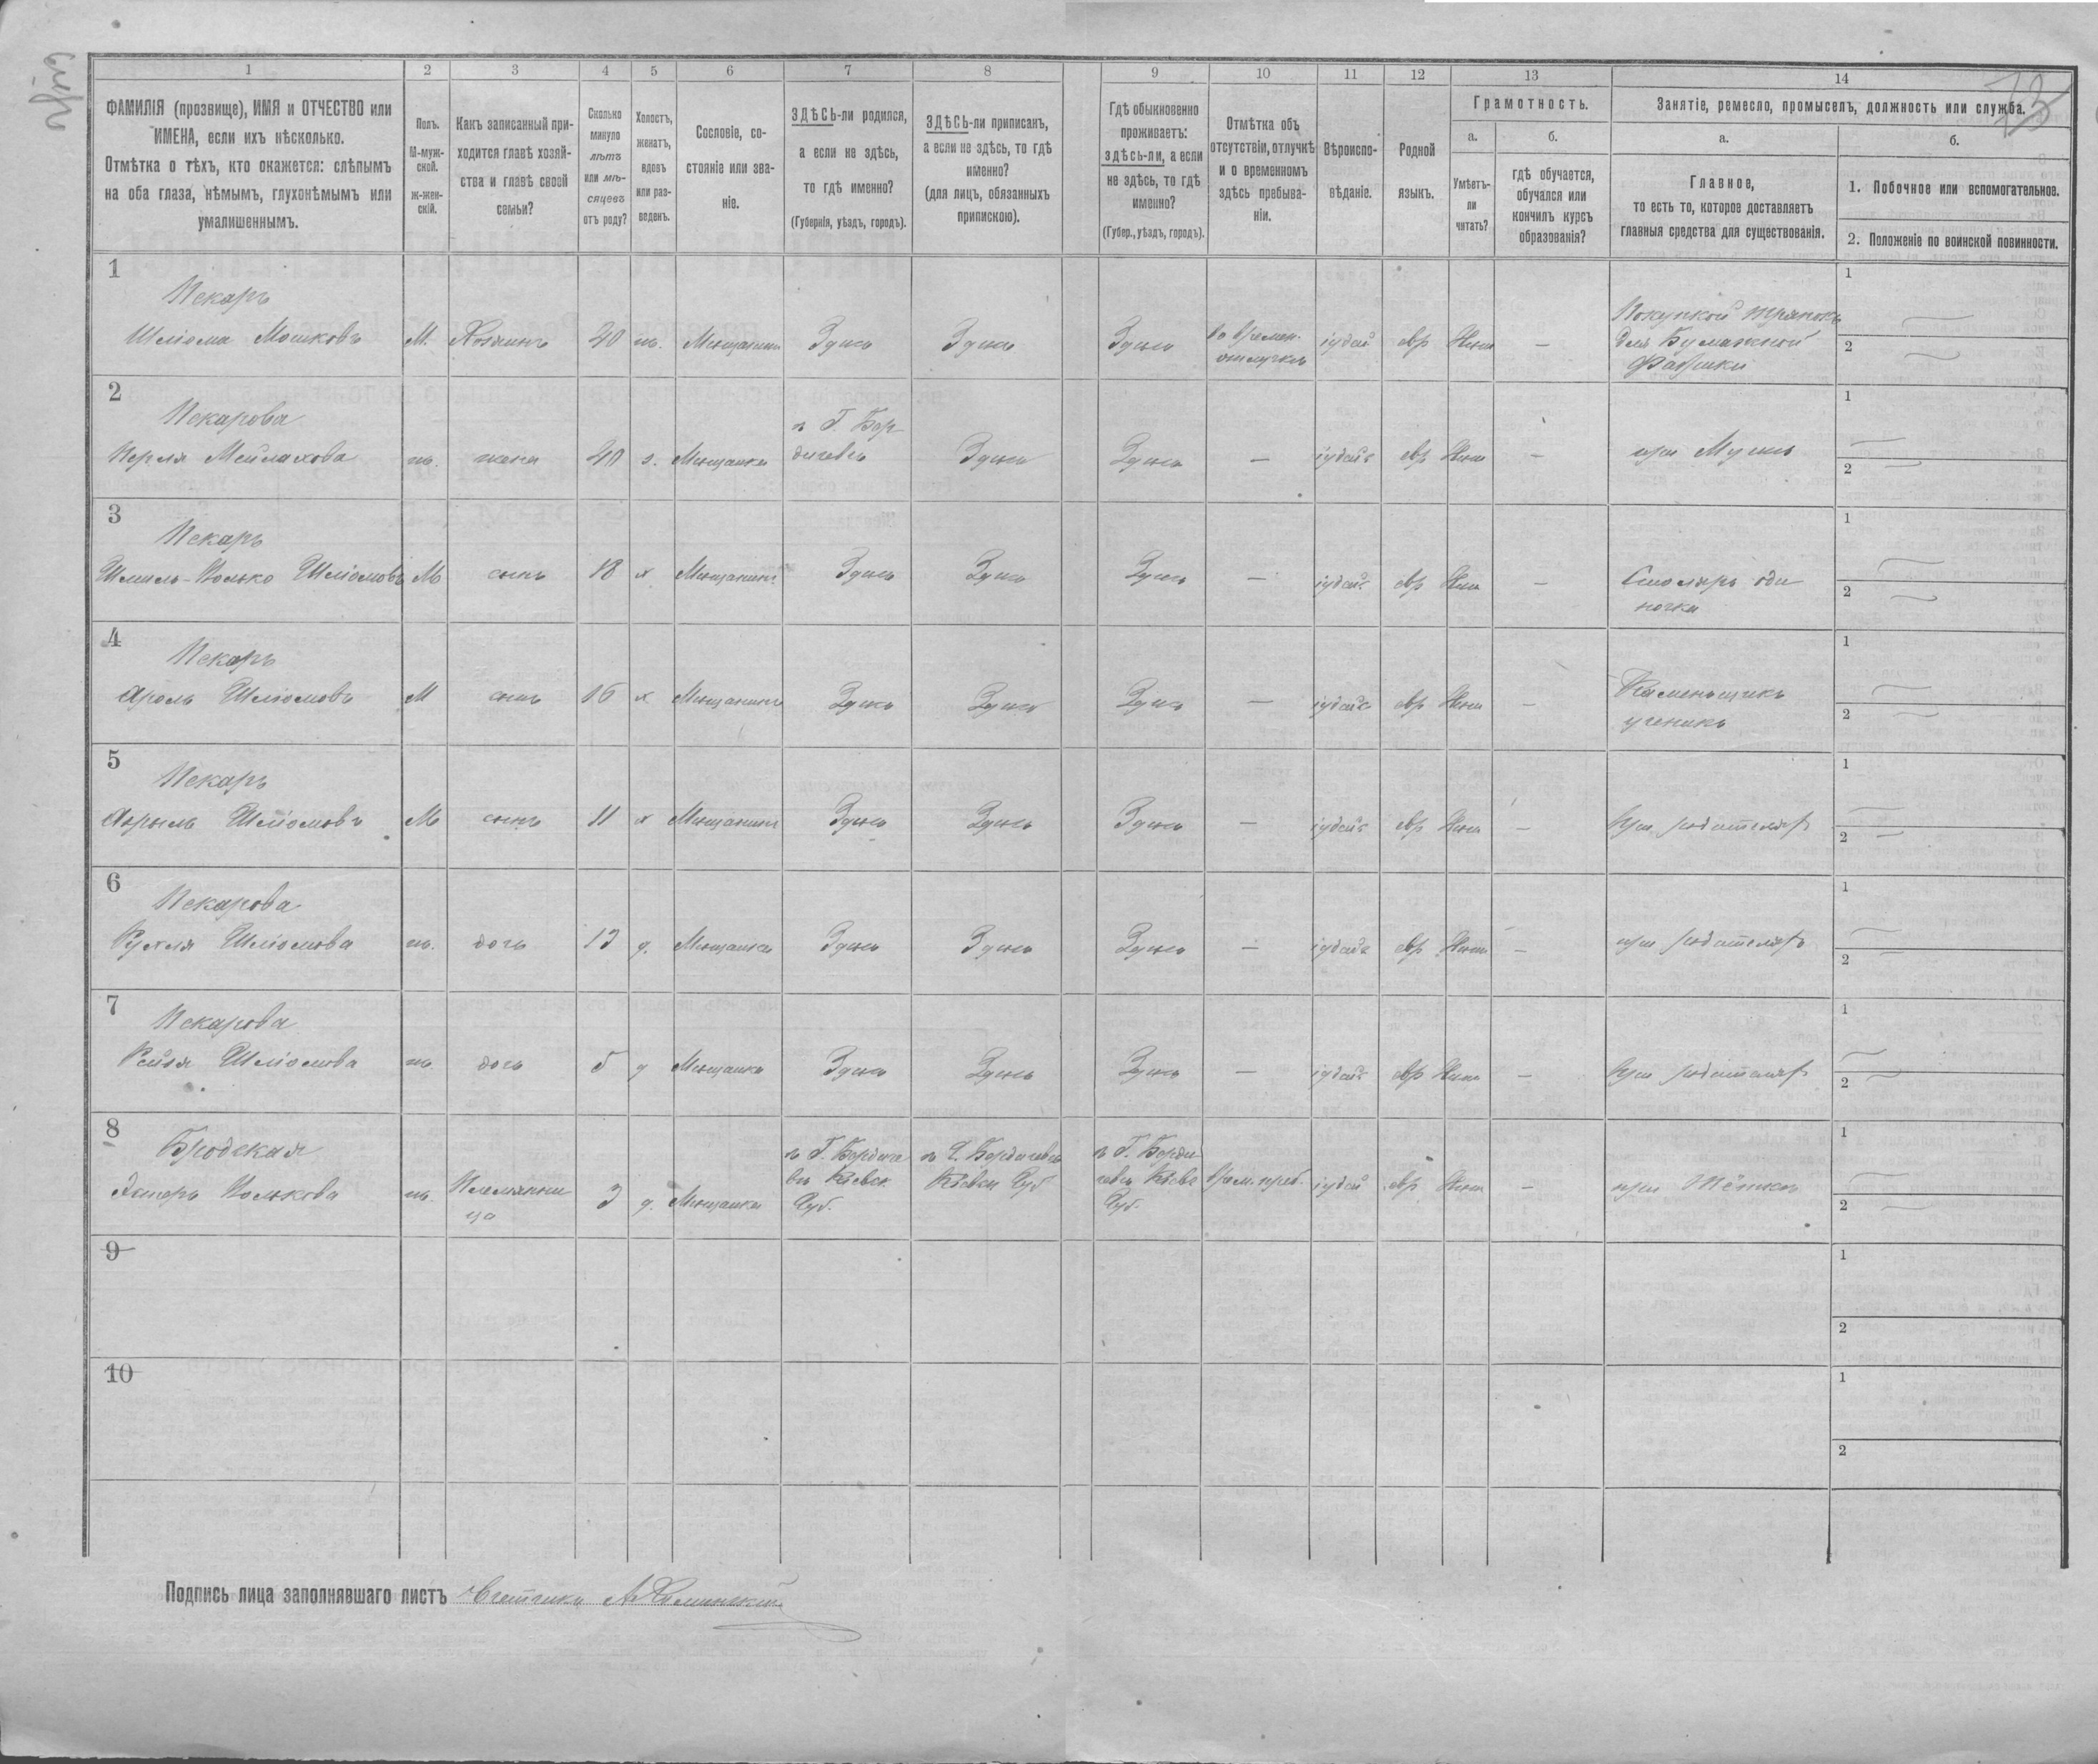 73
1 2 3 4 5 6 7 8 9 10 11 12 13 14
ФАМИЛІЯ (прозвище), ИМЯ и ОТЧЕСТВО или
ИМЕНА, если ихъ нѣсколько.
Отмѣтка о тѣхъ, кто окажется: слѣпымъ
на оба глаза, нѣмымъ, глухонѣмымъ или
умалишеннымъ.
Полъ.
М-муж-
ской.
ж-жен-
скій.
Какъ записанный при-
ходится главѣ хозяй-
ства и главѣ своей
семьи?
Сколько
минуло
лѣтъ
или мѣ-
сяцевъ
отъ роду?
Холостъ,
женатъ,
вдовъ
или раз-
веденъ.
Сословіе, со-
стояніе или зва-
ніе.
ЗДѢСЬ-ли родился,
а если не здѣсь,
то гдѣ именно?
(Губернія, уѣздъ, городъ).
ЗДѢСЬ-ли приписанъ,
а если не здѣсь, то гдѣ
именно?
(для лицъ, обязанныхъ
припискою).
Гдѣ обыкновенно
проживаетъ:
здѣсь-ли, а если
не здѣсь, то гдѣ
именно?
(Губер., уѣздъ, городъ).
Отмѣтка объ
отсутствіи, отлучкѣ
и о временномъ
здѣсь пребыва-
ніи.
Вѣроиспо-
вѣданіе.
Родной
языкъ.
Грамотность.
а.
Умѣетъ-
ли
читать?
б.
гдѣ обучается,
обучался или
кончилъ курсъ
образованія?
Занятіе, ремесло, промыселъ, должность или служба.
а.
Главное,
то есть то, которое доставляетъ
главныя средства для существованія.
б.
1. Побочное или вспомогательное.
2. Положеніе по воинской повинности.
1
Пекаръ
Шліома Мошковъ М. Хозяинъ 40 ж. Мещанинъ Здесь Здесь Здесь во времен. отлучкѣ іудей евр Нет — Покупкой тряпокъ
для Бумажной
Фабрики
1
2
2
Пекарова
Перля Мейлахова ж. жена 40 з. Мещанка въ Г. Бер
дичевѣ Здесь Здесь — іудейс евр Нет — при Мужѣ
1
2
3
Пекаръ
Шмиль-Волько Шліомовъ М сынъ 18 х Мещанинъ Здесь Здесь Здесь — іудейс евр Нет — Столяръ оди
ночка
1
2
4
Пекаръ
Ароль Шліомовъ М сынъ 16 х Мещанинъ Здесь Здесь Здесь — іудейс евр Нет — Каменьщикъ
ученикъ
1
2
5
Пекаръ
Шліомовъ М сынъ 11 х Мещанинъ Здесь Здесь Здесь — іудейс евр Нет — При родителях
1
2
6
Пекарова
Рухля Шліомова ж. дочь 13 д. Мещанка Здесь Здесь Здесь — іудейс евр Нет — при родителяхъ
1
2
7
Пекарова
Рейзя Шліомова ж. дочь 5 д Мещанка Здесь Здесь Здесь — іудейс евр Нет — При родителях
1
2
8
Бродская
Эстеръ Волькова ж. Племянни
ца 3 д. Мещанка въ Г. Бердиче
вѣ Кіевск
Губ. въ Г. Бердичевѣ
Кіевск Губ въ Г. Берди
чевѣ Кіевс
Губ. врем. преб. іудей евр Нет — при Тёткѣ
1
2
9
1
2
10
1
2
Подпись лица заполнявшаго листъ Счетчикъ